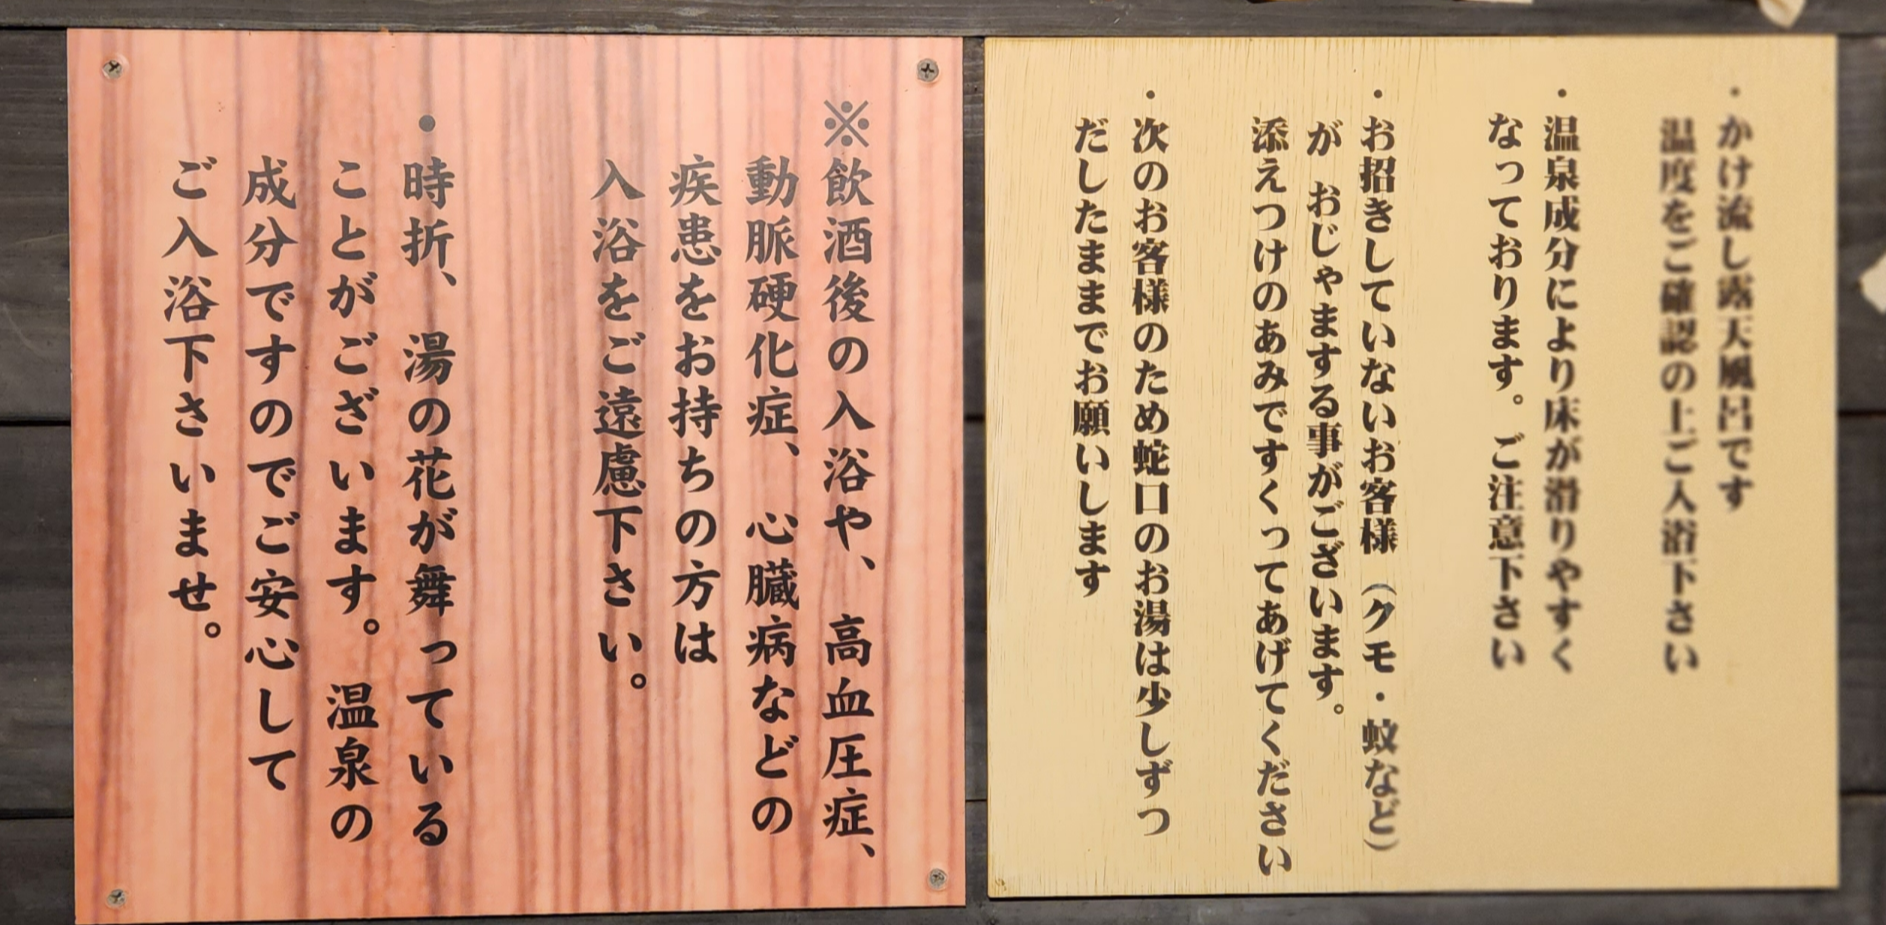 ・かけ流し露天風呂です
温度をご確認の上ご入浴下さい
・温泉成分により床が滑りやすく
なっております。ご注意下さい
・お招きしていないお客様（クモ・蚊など）
が おじゃまする事がございます。
添えつけのあみですくってあげてください
・次のお客様のため蛇口のお湯は少しずつ
だしたままでお願いします
※飲酒後の入浴や、高血圧症、
動脈硬化症、心臓病などの
疾患をお持ちの方は
入浴をご遠慮下さい。
・時折、湯の花が舞っている
ことがございます。温泉の
成分ですのでご安心して
ご入浴下さいませ。